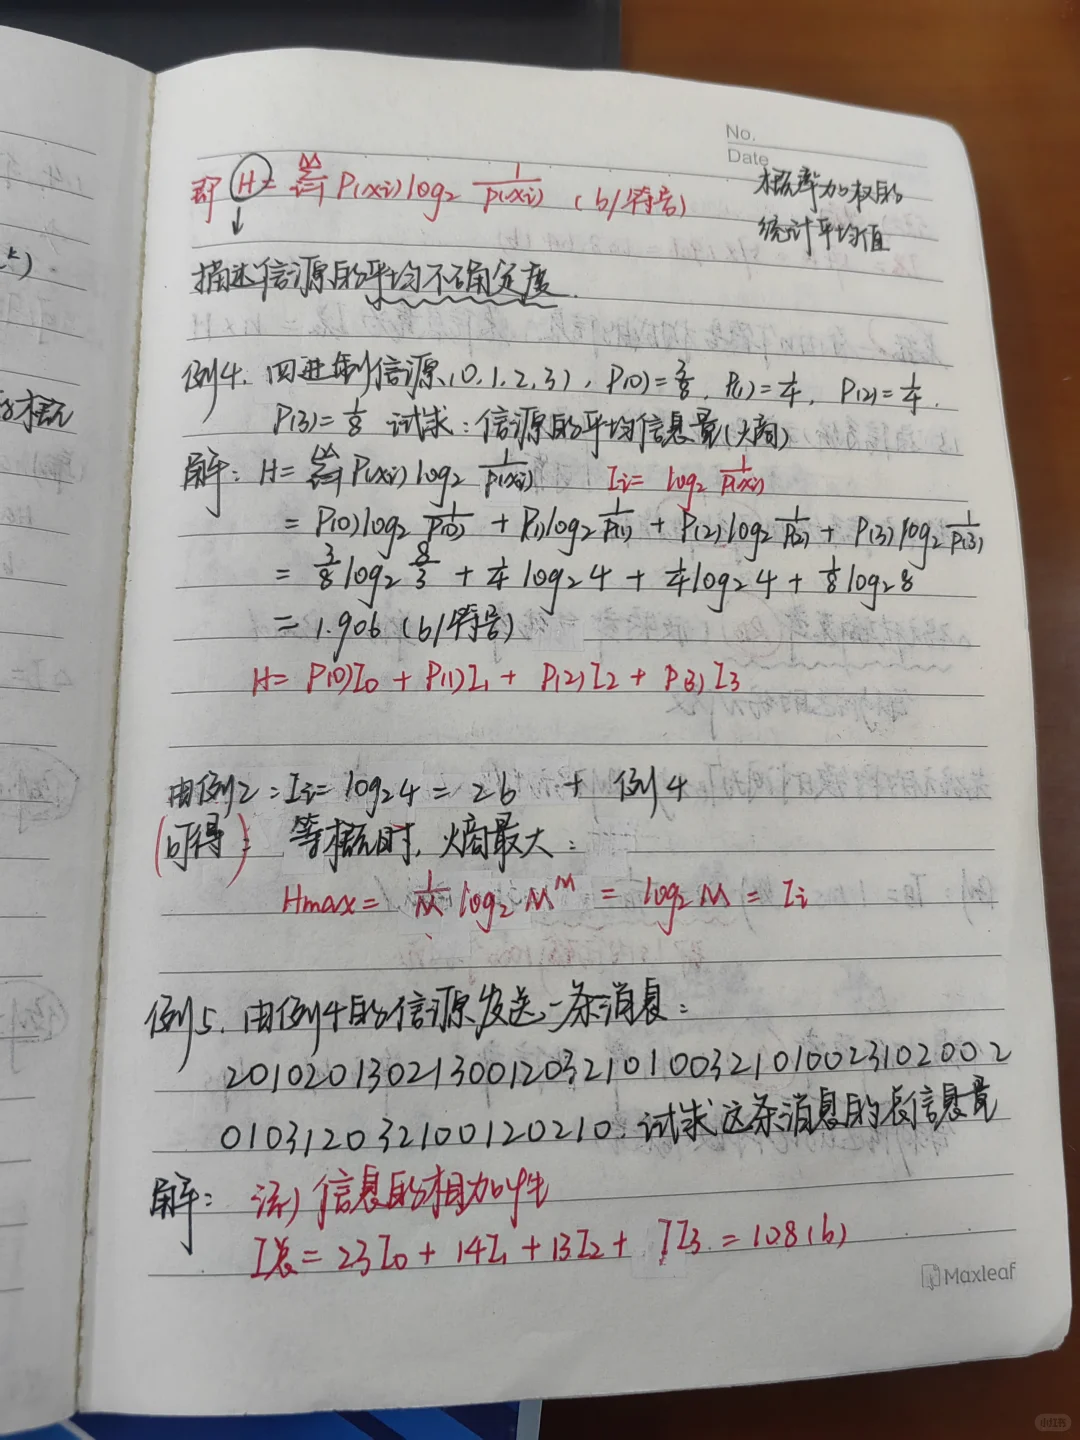 No.
Date
即 H = ∑ᵢ₌₁ᴹ P(xi) log₂ 1/P(xi) (b/符号)
概率加权的
统计平均值
↓
描述信源的平均不确定度.
例4. 四进制信源(0,1,2,3), P(0)=3/8, P(1)=1/4, P(2)=1/4.
P(3)=1/8 试求:信源的平均信息量(熵)
解: H= ∑ᵢ₌₁ᴹ P(xi) log₂ 1/P(xi) Ii= log₂ 1/P(xi)
= P(0)log₂ 1/P(0) + P(1)log₂ 1/P(1) + P(2)log₂ 1/P(2) + P(3)log₂ 1/P(3)
= 3/8 log₂ 8/3 + 1/4 log₂4 + 1/4 log₂4 + 1/8 log₂8
= 1.906 (b/符号)
H= P(0)I₀ + P(1)I₁ + P(2)I₂ + P(3)I₃
由例2: Ii= log₂4 = 2b + 例4
(可得): 等概时,熵最大:
Hmax= 1/M log₂ Mᴹ = log₂M = Ii
例5. 由例4的信源发送一条消息:
201020130213001203210100321010023102002
010312032100120210. 试求这条消息的总信息量
解: 法1) 信息的相加性
I总= 23I₀ + 14I₁ + 13I₂ + 7I₃ = 108(b)
Maxleaf
小红书